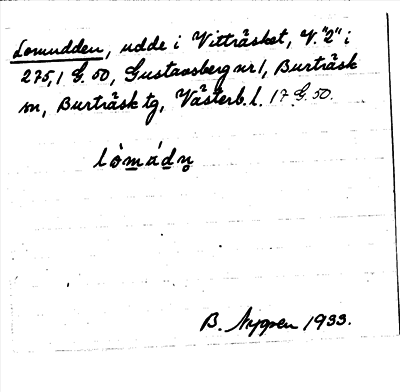 Lomudden, udde i Vitträsket, V. "2" i
275,1 G. 50, Gustavsberg nr 1, Burträsk
sn, Burträsk tg, Västerb. l. 17 G. 50.
lòmádṇ
B. Nygren 1933.